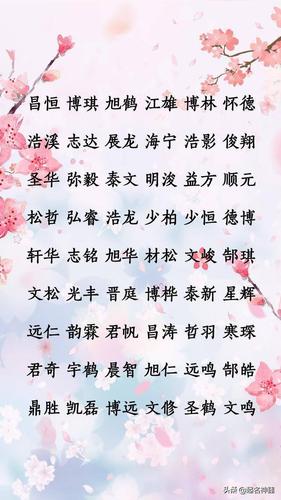 昌恒 博琪 旭鹤 江雄 博林 怀德
浩溪 志达 展龙 海宁 浩影 俊翔
圣华 弥毅 泰文 明浚 益方 顺元
松哲 弘睿 浩龙 少柏 少恒 德博
轩华 志铭 旭华 材松 文峻 郜琪
文松 光丰 晋庭 博桦 泰新 星辉
远仁 韵霖 君帆 昌涛 哲羽 寒琛
君奇 宇鹤 晨智 旭仁 远鸣 郜皓
鼎胜 凯磊 博远 文修 圣鹤 文鸣
头条 @起名神器